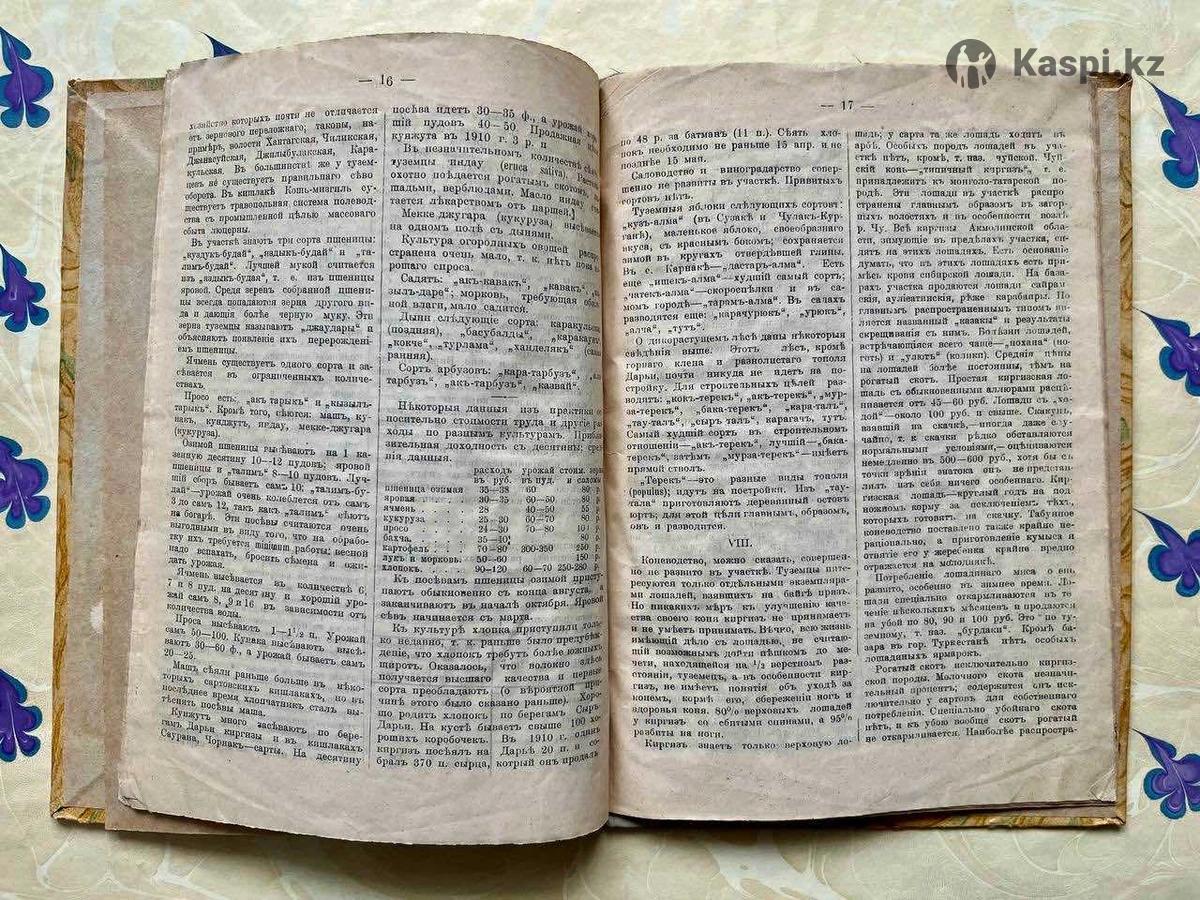 Kaspi.kz
— 16 —
хозяйство которыхъ почти не отличается
отъ зернового переложнаго; таковы, на-
примѣръ, волости Хантагская, Чиликская,
Джанасуйская, Джилыбулакская, Кара-
кульская. Въ большинствѣ же у тузем-
цевъ не существуетъ правильнаго сѣво
оборота. Въ кишлакѣ Кошъ-мизгилъ су-
ществуетъ травопольная система полевод-
ства съ промышленной цѣлью массоваго
сбыта люцерны.
Въ участкѣ знаютъ три сорта пшеницы:
„куздукъ-будай“, „яздыкъ-будай“ и „та-
лимъ-будай“. Лучшей мукой считается
изъ „яздыкъ-будай“, т. е. изъ пшеницы
яровой. Среди зеренъ собранной пшени-
цы всегда попадаются зерна другого ви-
да и дающія болѣе черную муку. Эти
зерна туземцы называютъ „джаудары“ и
объясняютъ появленіе ихъ перерожденi-
емъ пшеницы.
Ячмень существуетъ одного сорта и за-
сѣвается въ ограниченныхъ количе-
ствахъ.
Просо есть: „акъ тарыкъ“ и „кызылъ-
тарыкъ“. Кромѣ того, сѣются: машъ, ку-
накъ, кунджутъ, индау, мекке-джугара
(кукуруза).
Озимой пшеницы высѣваютъ на 1 ка-
зенную десятину 10—12 пудовъ; яровой
пшеницы и „талимъ“ 8—10 пудовъ. Луч-
шій сборъ бываетъ самъ 10; „талимъ-бу-
дай“—урожай очень колеблется отъ самъ
3 до самъ 12, такъ какъ „талимъ“ сѣютъ
на богарѣ. Эти посѣвы считаются очень
выгодными въ виду того, что на обрабо-
тку ихъ требуется minimum работы: весной
надо вспахать, бросить сѣмена и ожи-
дать урожая.
Ячмень высѣвается въ количествѣ 6,
7 и 8 пуд. на десятину и хорошій уро-
жай самъ 8, 9 и 16 въ зависимости отъ
количества воды.
Проса высѣваютъ 1—1½ п. Урожай
самъ 50—100. Кунака высѣваютъ высѣ-
ваютъ 30—60 ф., а урожай бываетъ самъ
20—25.
Машъ сѣяли раньше больше въ нѣко-
торыхъ сартовскихъ кишлакахъ, но въ
послѣднее время хлопчатникъ сталъ вы-
тѣснять посѣвы маша.
Кунжутъ много засѣваютъ по бере-
гамъ Дарьи киргизы и въ кишлакахъ
Саурана, Чорнакъ—сарты. На десятину
посѣва идетъ 30—35 ф., а урожай хоро-
шій пудовъ 40—50. Продежная
кунжута въ 1910 г. 3 р. п
Въ незначительномъ количествѣ сѣютъ
туземцы индау (eruca sativa).
охотно поѣдается рогатымъ скотомъ,
шадьми, верблюдами. Масло индау счи-
тается лѣкарствомъ отъ паршей.
Мекке джугара (кукуруза) высѣвается
на одномъ полѣ съ дынями.
Культура огородныхъ овощей распро-
странена очень мало, т. к. нѣтъ пока хо-
рошаго спроса.
Садятъ: „акъ-кавакъ“, „кавакъ“,
зылъ-даре“; морковь, требующая
ной влаги, мало садится.
Дыни слѣдующіе сорта: каракульская
(поздняя), „басубалды“, „каракаук“,
„кокче“, „турлама“, „ханделякъ“ (самая
ранняя).
Сортъ арбузовъ: „кара-тарбузъ“,
тарбузъ“, „акъ-тарбузъ“, „казвай“.
Нѣкоторыя данныя изъ практики от-
носительно стоимости труда и другіе рас-
ходы по разнымъ культурамъ. Прибли-
зительная доходность съ десятины; сред-
нія данныя.
расходъ урожай стоим. зерна
въ руб. въ пуд. и соломы
пшеница озимая 35—38 60 80 р.
яровая . . . . 30—35 60—50 80 р.
ячмень . . . . 28 40—50 55 р.
кукуруза . . . 25—30 60—70 80 р.
просо . . . . 24—30 70—80 101 р.
бахча. . . . . 35—40 80 р.
картофель . . . 70—80 300-350 250 р.
лукъ и морковь. 50—60 150 р.
хлопокъ. . . . 90—120 60—70 250-280 р.
Къ посѣвамъ пшеницы озимой присту-
паютъ обыкновенно съ конца августа, а
заканчиваютъ въ началѣ октября. Яровой
сѣвъ начинается съ марта.
Къ культурѣ хлопка приступили толь-
ко недавно, т. к. раньше было предубѣж-
деніе, что хлопокъ требуетъ болѣе южныхъ
широтъ. Оказалось, что волокно здѣсь
получается высшаго качества и первые
сорта преобладаютъ (о вѣроятной при-
чинѣ этого было сказано раньше). Хоро-
шо родитъ хлопокъ по берегамъ Сыръ-
Дарьи. На кустѣ бываетъ свыше 100 хо-
рошихъ коробочекъ. Въ 1910 г. одинъ
киргизъ посѣялъ на Дарьѣ 20 п. и со-
бралъ 370 п. сырца, котрый онъ продалъ
— 17 —
по 48 р. за батманъ (11 п.). Сѣять хло-
покъ необходимо не раньше 15 апр. и не
позднѣе 15 мая.
Садоводство и виноградарство совер-
шенно не развиты въ участкѣ. Привитыхъ
сортовъ нѣтъ.
Туземныя яблоки слѣдующихъ сортовъ:
„кузъ-алма“ (въ Сузакѣ и Чулакъ-Кур-
ганѣ), маленькое яблоко, своеобразнаго
вкуса, съ краснымъ бокомъ; сохраняется
зимой въ кругахъ отвердѣвшей глины.
Въ с. Карнакѣ—„дастаръ-алма“. Есть
еще „ишекъ-алма“—худшій самый сортъ;
„чатекъ-алма“—скороспѣлки и въ са-
момъ городѣ—„тарамъ-алма“. Въ садахъ
разводятся еще: „карачурюкъ“, „урюкъ“,
„алча“, „тутъ“.
О дикорастущемъ лѣсѣ даны нѣкоторыя
свѣдѣнія выше. Этотъ лѣсъ, кромѣ
горнаго клена и разнолистаго тополя
Дарьи, почти никуда не идетъ на по-
стройку. Для строительныхъ цѣлей раз-
водятъ: „кокъ-терекъ“, „акъ-терекъ“, „мур-
за-терекъ“, „бака-терекъ“, „кара-талъ“,
„тау-талъ“, „сыръ талъ“, карагачъ, тутъ.
Самый худшій сортъ въ строительномъ
отношеніи—„акъ-терекъ“, лучшій—„бака-
терекъ“, затѣмъ „мурза-терекъ“—имѣетъ
прямой стволъ.
„Терекъ“—это разные виды тополя
(populus); идутъ на постройки. Изъ „тау-
тала“ приготовляютъ деревянный остовъ
юртъ; для этой цѣли главнымъ, образомъ,
онъ и разводится.
VIII.
Коневодство, можно сказать, совершен-
но не развито въ участкѣ. Туземцы инте-
ресуются только отдѣльными экземпляра-
ми лошадей, взявшихъ на байгѣ призъ.
Но никакихъ мѣръ къ улучшенію каче-
ства своего коня киргизъ не принимаетъ
и не умѣетъ принимать. Вѣчно, всю жизнь
имѣющій дѣло съ лошадью, не считаю-
щій возможнымъ дойти пѣшкомъ до ме-
чети, находящейся на ½ верстномъ раз-
стояніи, туземецъ, а въ особенности кир-
гизъ, не имѣетъ понятія объ уходѣ за
конемъ, кормѣ его, сбереженіи ногъ и
здоровья коня. 80% верховыхъ лошадей
у киргизъ со сбитыми спинами, а 95%
разбиты на ноги.
Киргизъ знаетъ только верховую ло-
шадь; у сарта та же лошадь ходитъ въ
арбѣ. Особыхъ породъ лошадей въ уча-
сткѣ нѣтъ, кромѣ, т. наз. чуйской. Чуй-
скій конь—„типичный киргизъ“, т. е.
принадлежитъ къ монголо-татарской по-
родѣ. Эти лошади въ участкѣ распро-
странены главнымъ образомъ въ загор-
ныхъ волостяхъ и въ особенности возлѣ
р. Чу. Всѣ киргизы Акмолинской обла-
сти, зимующіе въ предѣлахъ участка, си-
дятъ на этихъ лошадяхъ. Есть основаніе
думать, что въ этихъ лошадяхъ есть при-
мѣсь крови сибирской лошади. На база-
рахъ участка продаются лошади сайрам-
скія, ауліеатинскія, рѣже карабаиры. Но
главнымъ распространеннымъ типомъ яв-
ляется названный „казакы“ и результаты
скрещиванія съ нимъ. Болѣзни лошадей,
встрѣчающіяся всего чаще—„похана“ (но-
готь) и „уз̆ютъ“ (колики). Среднія цѣны
на лошадей болѣе постоянны, тѣмъ на
рогатый скотъ. Простая киргизская ло-
шадь съ обыкновенными аллюрами расцѣ-
нивается отъ 45—60 руб. Лошади съ „хо-
дой“—около 100 руб. и свыше. Скакунъ,
взявшій на скачкѣ,—иногда даже слу-
чайно, т. к скачки рѣдко обставляются
нормальными условіями,—оцѣнивающіеся
немедленно въ 500—600 руб., хотя бы съ
точки зрѣнія знатока онъ не представ-
лялъ изъ себя ничего особеннаго. Кир-
гизская лошадь—круглый годъ на под-
ножномъ корму за исключеніемъ, тѣхъ,
которыхъ готовятъ на скачку. Табунное
коневодство поставлено также крайне не-
раціонально, а приготовленіе кумыса и
отнятіе его у жеребенка крайне вредно
отражается на молоднякѣ.
Потребленіе лошадинаго мяса очень
развито, особенно въ зимнее время. Ло-
шади спеціально откармливаются въ те-
ченіе нѣсколькихъ мѣсяцевъ и продаются
на убой по 80, 90 и 100 руб. Это по ту-
земному, т. наз. „бурдаки“. Кромѣ ба-
зара въ гор. Туркестанѣ нѣтъ особыхъ
лошадиныхъ ярмарокъ.
Рогатый скотъ исключительно киргиз-
ской породы. Молочнаго скота незначи-
тельный процентъ; содержится онъ иск-
лючительно у сартовъ для собственнаго
потребленія. Спеціально убойнаго скота
нѣтъ, и къ убою вообще скотъ рогатый
не откармливается. Наиболѣе распростра-